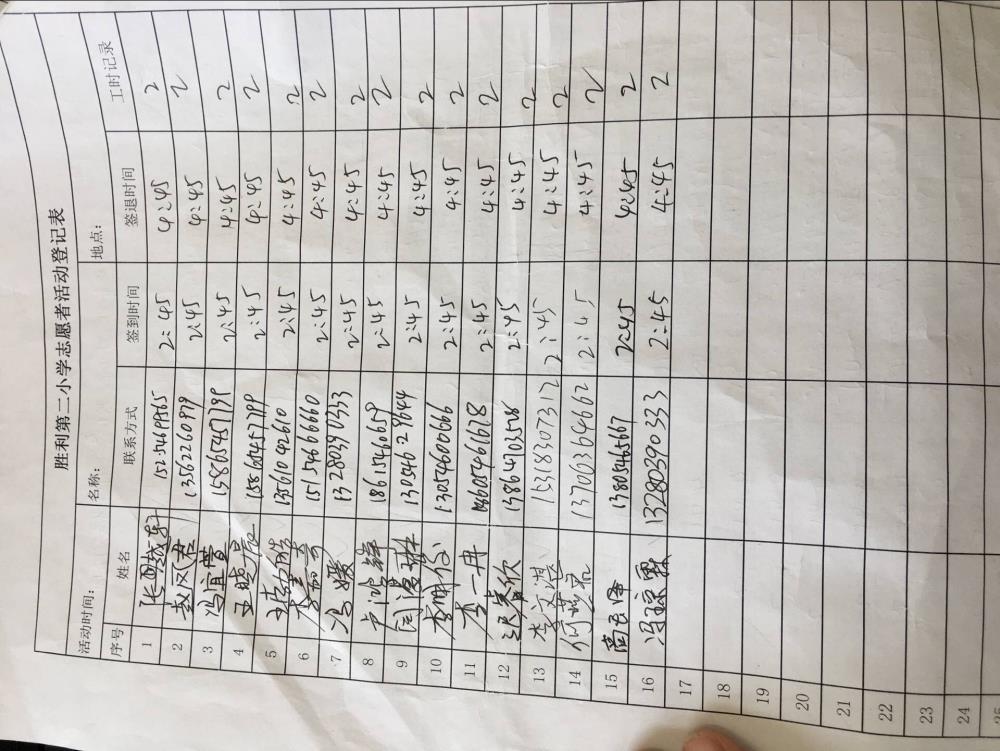 胜利第二小学志愿者活动登记表
活动时间: 名称: 地点:
序号 姓名 联系方式 签到时间 签退时间 工时记录
1 2:45 4:45 2
2 赵风君 13562260979 2:45 4:45 2
3 冯宜萱 15865457799 2:45 4:45 2
4 王晓晨 15865457799 2:45 4:45 2
5 13561042610 2:45 4:45 2
6 15154666660 2:45 4:45 2
7 冯媛 13280390333 2:45 4:45 2
8 卢鸿锋 18615460659 2:45 4:45 2
9 13054629644 2:45 4:45 2
10 13054600666 2:45 4:45 2
11 李一冉 18605461678 2:45 4:45 2
12 13864703528 2:45 4:45 2
13 李文淇 15318307312 2:45 4:45 2
14 13706364662 2:45 4:45 2
15 13805465667 2:45 4:45 2
16 冯琼霖 13280390333 2:45 4:45 2
17
18
19
20
21
22
23
24